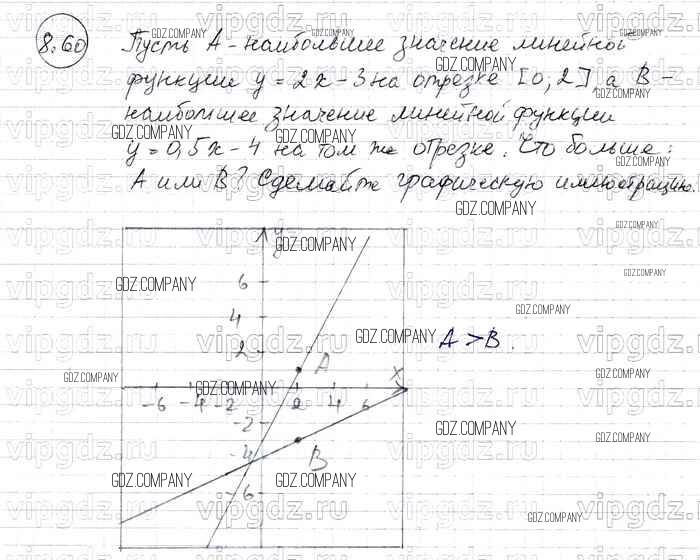 8.60 Пусть A - наибольшее значение линейной
функции y = 2x - 3 на отрезке [0, 2] а B -
наибольшее значение линейной функции
y = 0,5x - 4 на том же отрезке. Что больше:
A или B? Сделайте графическую иллюстрацию.
y
6
4
2
A
A > B.
x
-6 -4 -2 2 4 6
-2
-4
B
-6
GDZ.COMPANY
vipgdz.ru